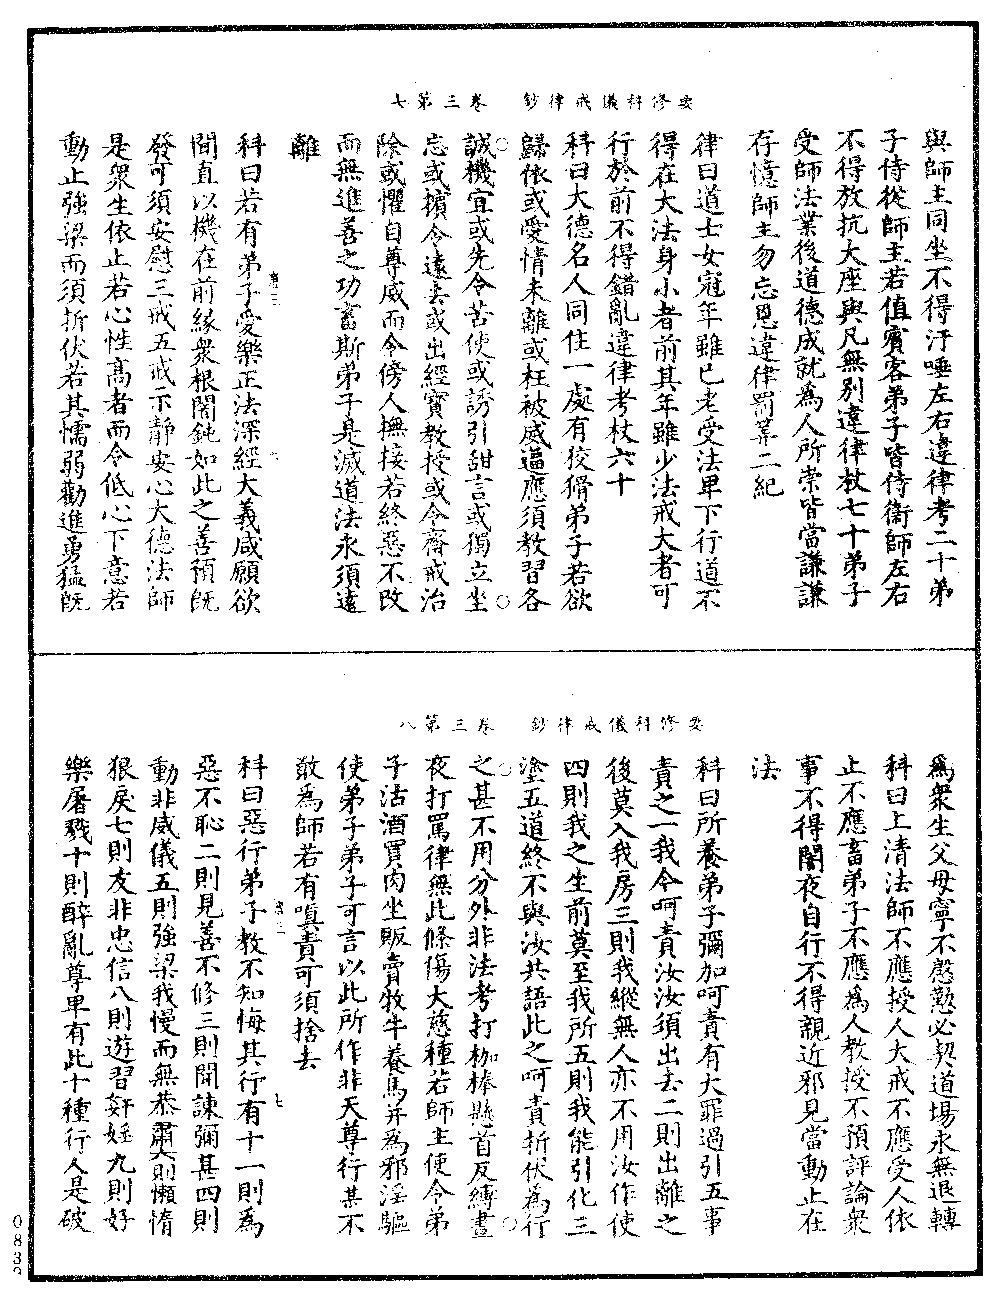 要修科儀戒律鈔　卷三第七
與師主同坐不得汙唾左右違律考二十弟
子侍從師主若值賓客弟子皆侍衞師左右
不得放抗大座與凡無別違律杖七十弟子
受師法業後道德成就爲人所崇皆當謙謙
存憶師主勿忘恩違律罰筭二紀
律曰道士女冠年雖已老受法卑下行道不
得在大法身小者前其年雖少法戒大者可
行於前不得錯亂違律考杖六十
科曰大德名人同住一處有狡猾弟子若欲
歸依或愛情未離或枉被威逼應須教習各
誠機宜或先令苦使或誘引甜言或獨立坐
忘或擯令遠去或出經寶教授或令齋戒治
除或懼自尊威而令傍人撫接若終惡不改
而無進善之功畜斯弟子是滅道法永須遠
離
科曰若有弟子愛樂正法深經大義咸願欲
聞直以機在前緣衆根闇鈍如此之善預既
發可須安慰三戒五戒示靜安心大德法師
是衆生依止若心性高者而令低心下意若
動止強梁而須折伏若其懦弱勸進勇猛既
要修科儀戒律鈔　卷三第八
爲衆生父母寧不慇懃必契道場永無退轉
科曰上清法師不應授人大戒不應受人依
止不應畜弟子不應爲人教授不預評論衆
事不得闇夜自行不得親近邪見當動止在
法
科曰所養弟子彌加呵責有大罪過引五事
責之一我今呵責汝汝須出去二則出離之
後莫入我房三則我縱無人亦不用汝作使
四則我之生前莫至我所五則我能引化三
塗五道終不與汝共語此之呵責折伏爲行
之甚不用分外非法考打枷棒懸首反縛晝
夜打罵律無此條傷大慈種若師主使令弟
子沽酒買肉坐販賣牧牛養馬并爲邪淫驅
使弟子弟子可言以此所作非天尊行某不
敢爲師若有嗔責可須捨去
科曰惡行弟子教不知悔其行有十一則爲
惡不恥二則見善不修三則聞諫彌甚四則
動非威儀五則強梁我慢而無恭肅六則懶惰
狠戾七則友非忠信八則遊習姧婬九則好
樂屠戮十則醉亂尊卑有此十種行人是破